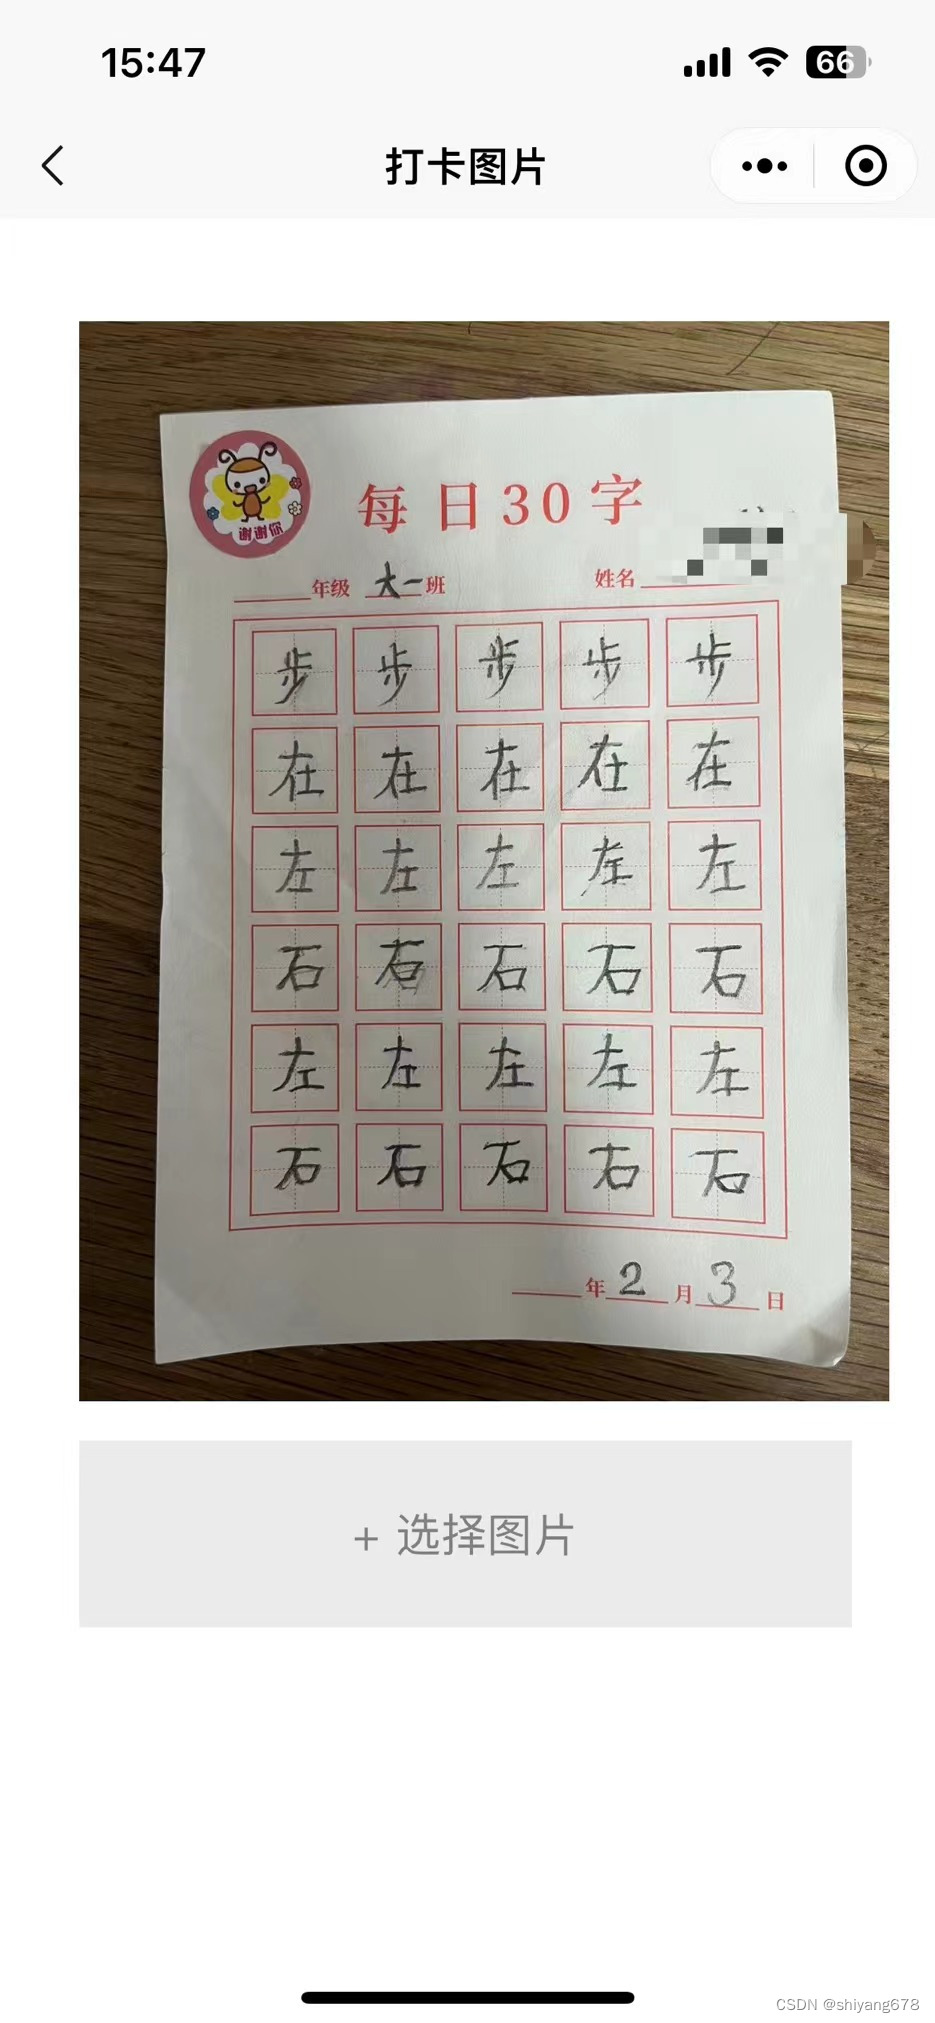 15:47
66
打卡图片
谢谢你
每日30字
年级 大一班 姓名
步 步 步 步 步
在 在 在 在 在
左 左 左 左 左
石 石 石 石 石
左 左 左 左 左
石 石 石 右 石
年2月3日
+ 选择图片
CSDN @shiyang678